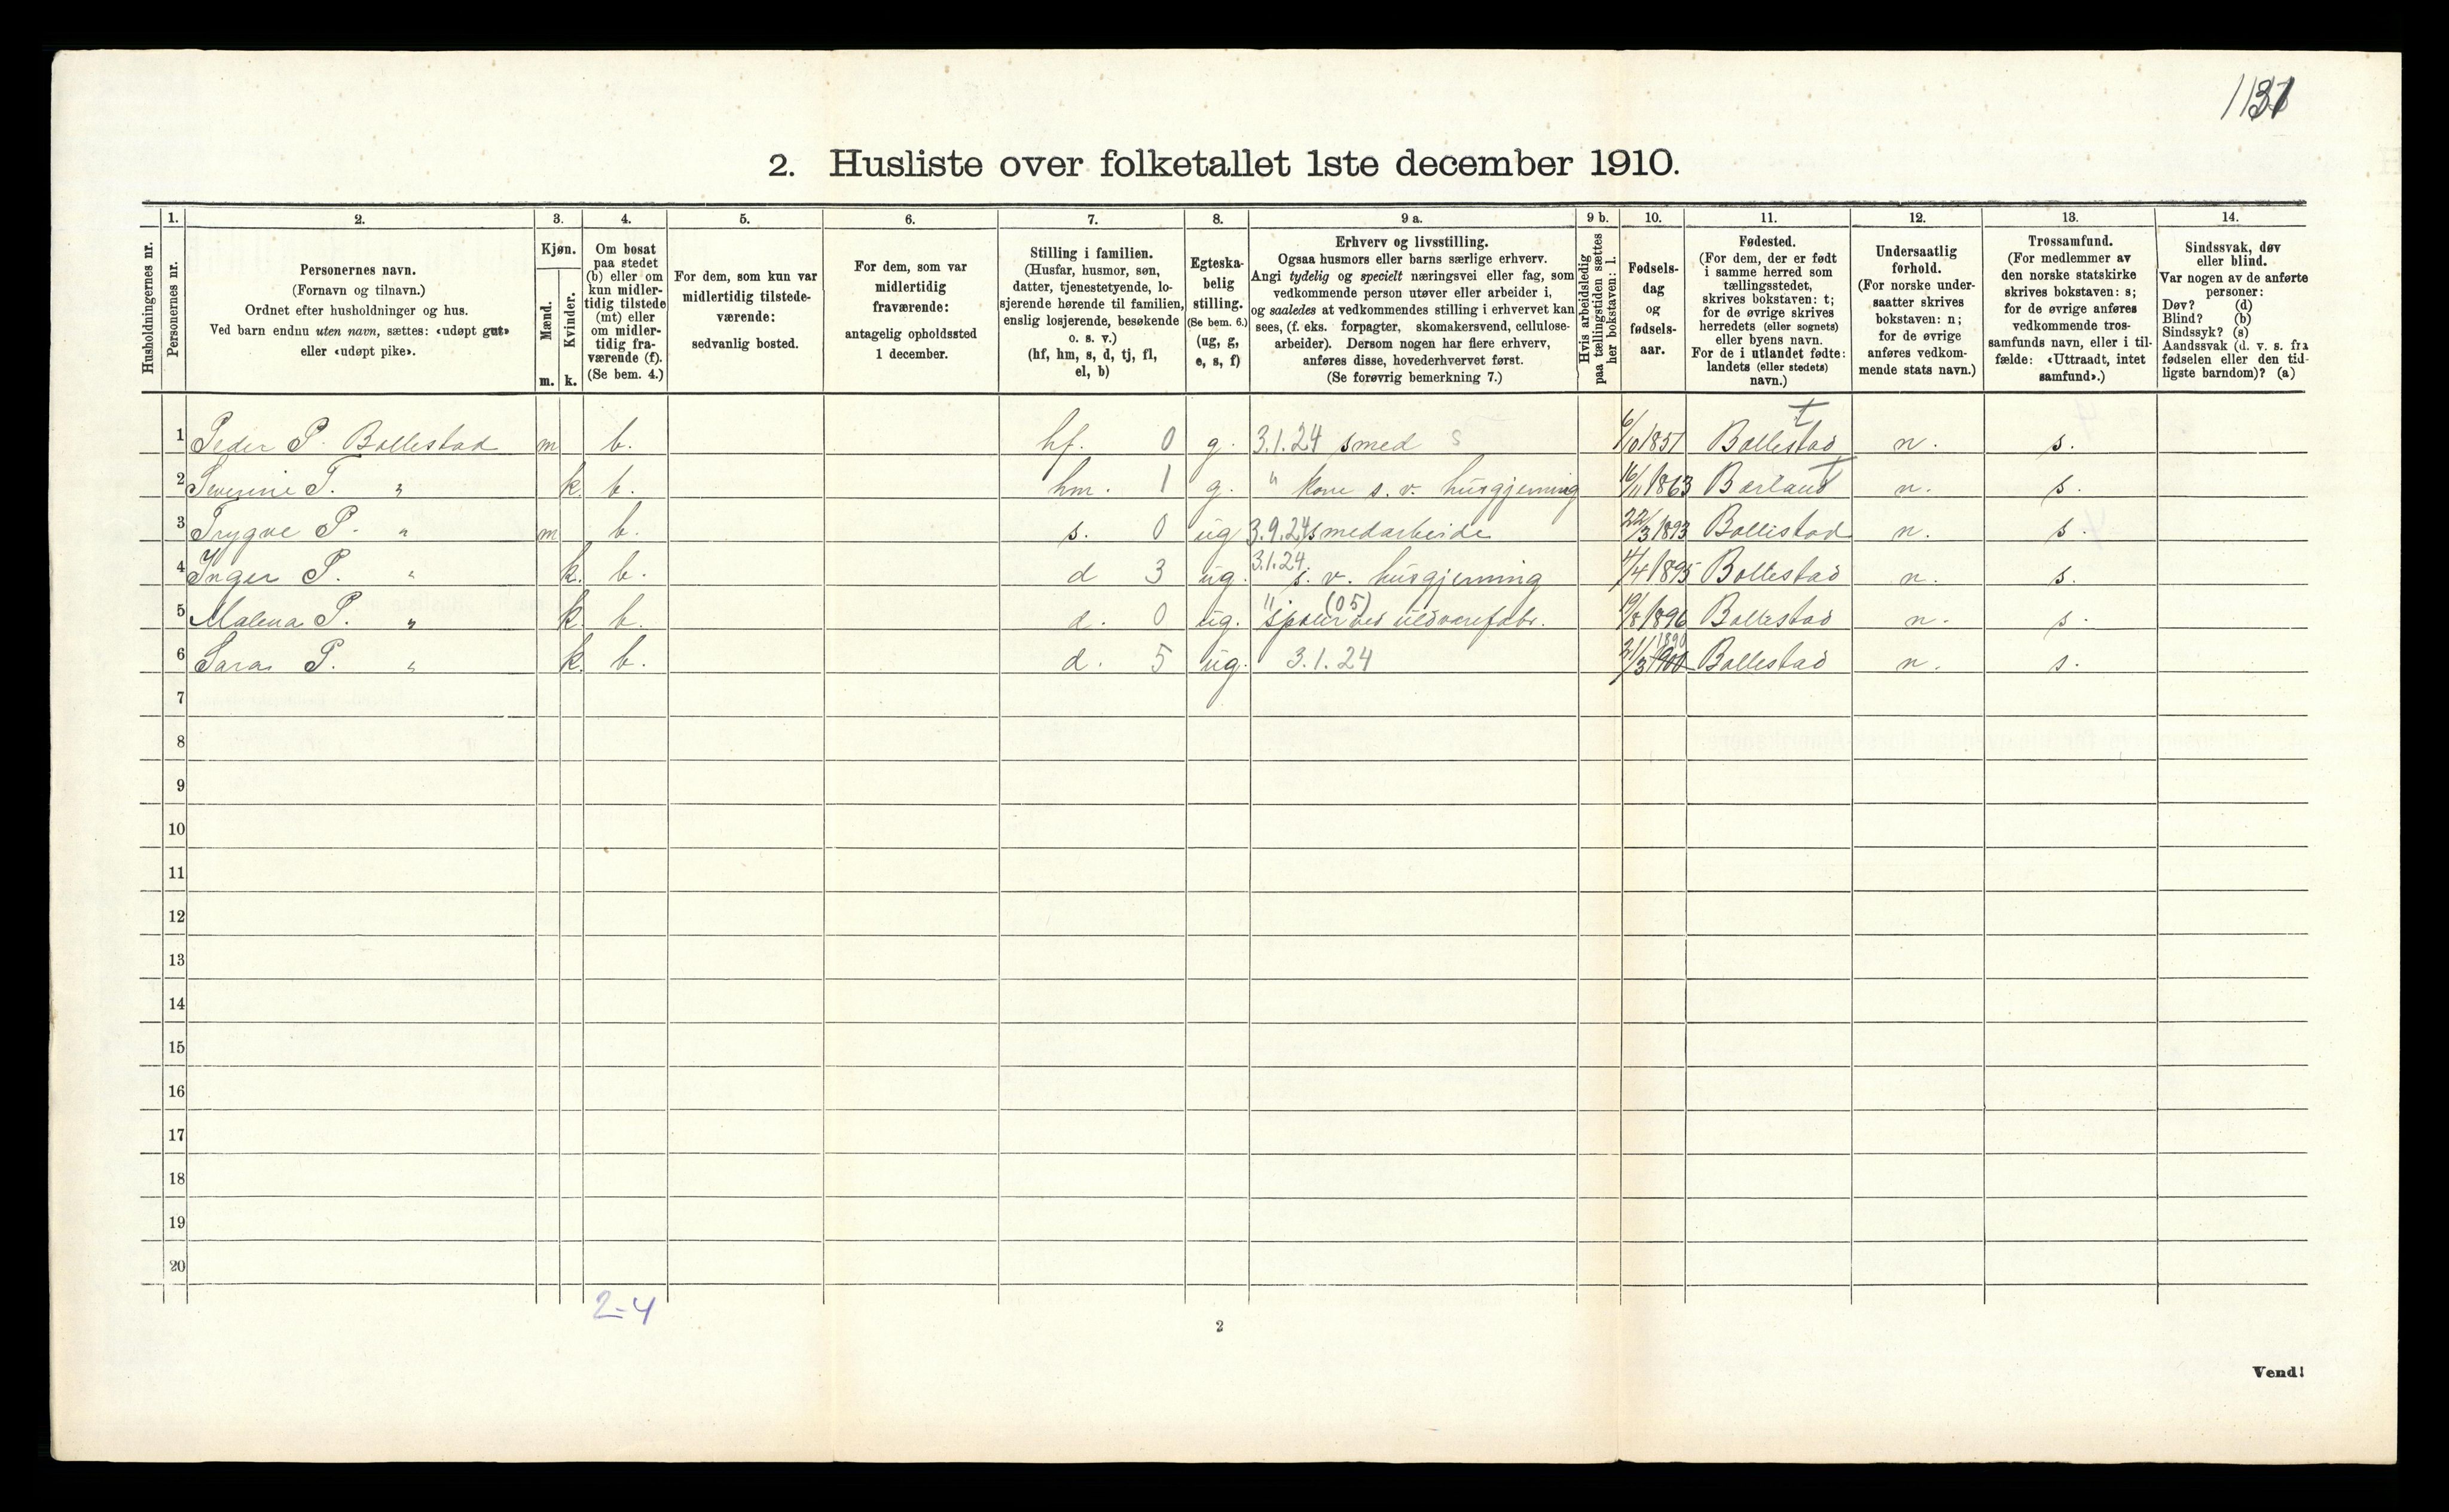 1131
2. Husliste over folketallet 1ste december 1910.
1. 2. 3. 4. 5. 6. 7. 8. 9 a. 9 b. 10. 11. 12. 13. 14.
Husholdningernes nr.
Personernes nr.
Personernes navn.
(Fornavn og tilnavn.)
Ordnet efter husholdninger og hus.
Ved barn endnu uten navn, sættes: «udøpt gut»
eller «udøpt pike».
Kjøn.
Mænd.
Kvinder.
m. k.
Om bosat
paa stedet
(b) eller om
kun midler-
tidig tilstede
(mt) eller
om midler-
tidig fra-
værende (f).
(Se bem. 4.)
For dem, som kun var
midlertidig tilstede-
værende:
sedvanlig bosted.
For dem, som var
midlertidig
fraværende:
antagelig opholdssted
1 december.
Stilling i familien.
(Husfar, husmor, søn,
datter, tjenestetyende, lo-
sjerende hørende til familien,
enslig losjerende, besøkende
o. s. v.)
(hf, hm, s, d, tj, fl,
el, b)
Egteska-
belig
stilling.
(Se bem. 6.)
(ug, g,
e, s, f)
Erhverv og livsstilling.
Ogsaa husmors eller barns særlige erhverv.
Angi tydelig og specielt næringsvei eller fag, som
vedkommende person utøver eller arbeider i,
og saaledes at vedkommendes stilling i erhvervet kan
sees, (f. eks. forpagter, skomakersvend, cellulose-
arbeider). Dersom nogen har flere erhverv,
anføres disse, hovederhvervet først.
(Se forøvrig bemerkning 7.)
Hvis arbeidsledig
paa tællingstiden sættes
her bokstaven: l.
Fødsels-
dag
og
fødsels-
aar.
Fødested.
(For dem, der er født
i samme herred som
tællingsstedet,
skrives bokstaven: t;
for de øvrige skrives
herredets (eller sognets)
eller byens navn.
For de i utlandet fødte:
landets (eller stedets)
navn.)
Undersaatlig
forhold.
(For norske under-
saatter skrives
bokstaven: n;
for de øvrige
anføres vedkom-
mende stats navn.)
Trossamfund.
(For medlemmer av
den norske statskirke
skrives bokstaven: s;
for de øvrige anføres
vedkommende tros-
samfunds navn, eller i til-
fælde: «Uttraadt, intet
samfund».)
Sindssvak, døv
eller blind.
Var nogen av de anførte
personer:
Døv? (d)
Blind? (b)
Sindssyk? (s)
Aandssvak (d. v. s. fra
fødselen eller den tid-
ligste barndom)? (a)
1 Peder P. Bollestad m b. hf. 0 g. 3.1.24 smed s 6/10 1857 Bollestad t n. s.
2 Severine T. " k. b. hm. 1 g. " kone s. v. husgjerning 16/11 1863 t n. s.
3 Trygve P. " m b. s. 0 ug 3.9.24 smedarbeide 22/3 1893 Bollestad n. s.
4 Inger P. " k. b. d 3 ug. 3.1.24 s. v. husgjerning 1895 Bollestad n. s.
5 Malena P. " k. b. d. 0 ug. " (05) ved uldvarefabr. 19/8 1896 Bollestad n. s.
6 Sara P. " k. b. d. 5 ug. 3.1.24 21/3 Bollestad n. s.
7
8
9
10
11
12
13
14
15
16
17
18
19
20
2-4
2
Vend!